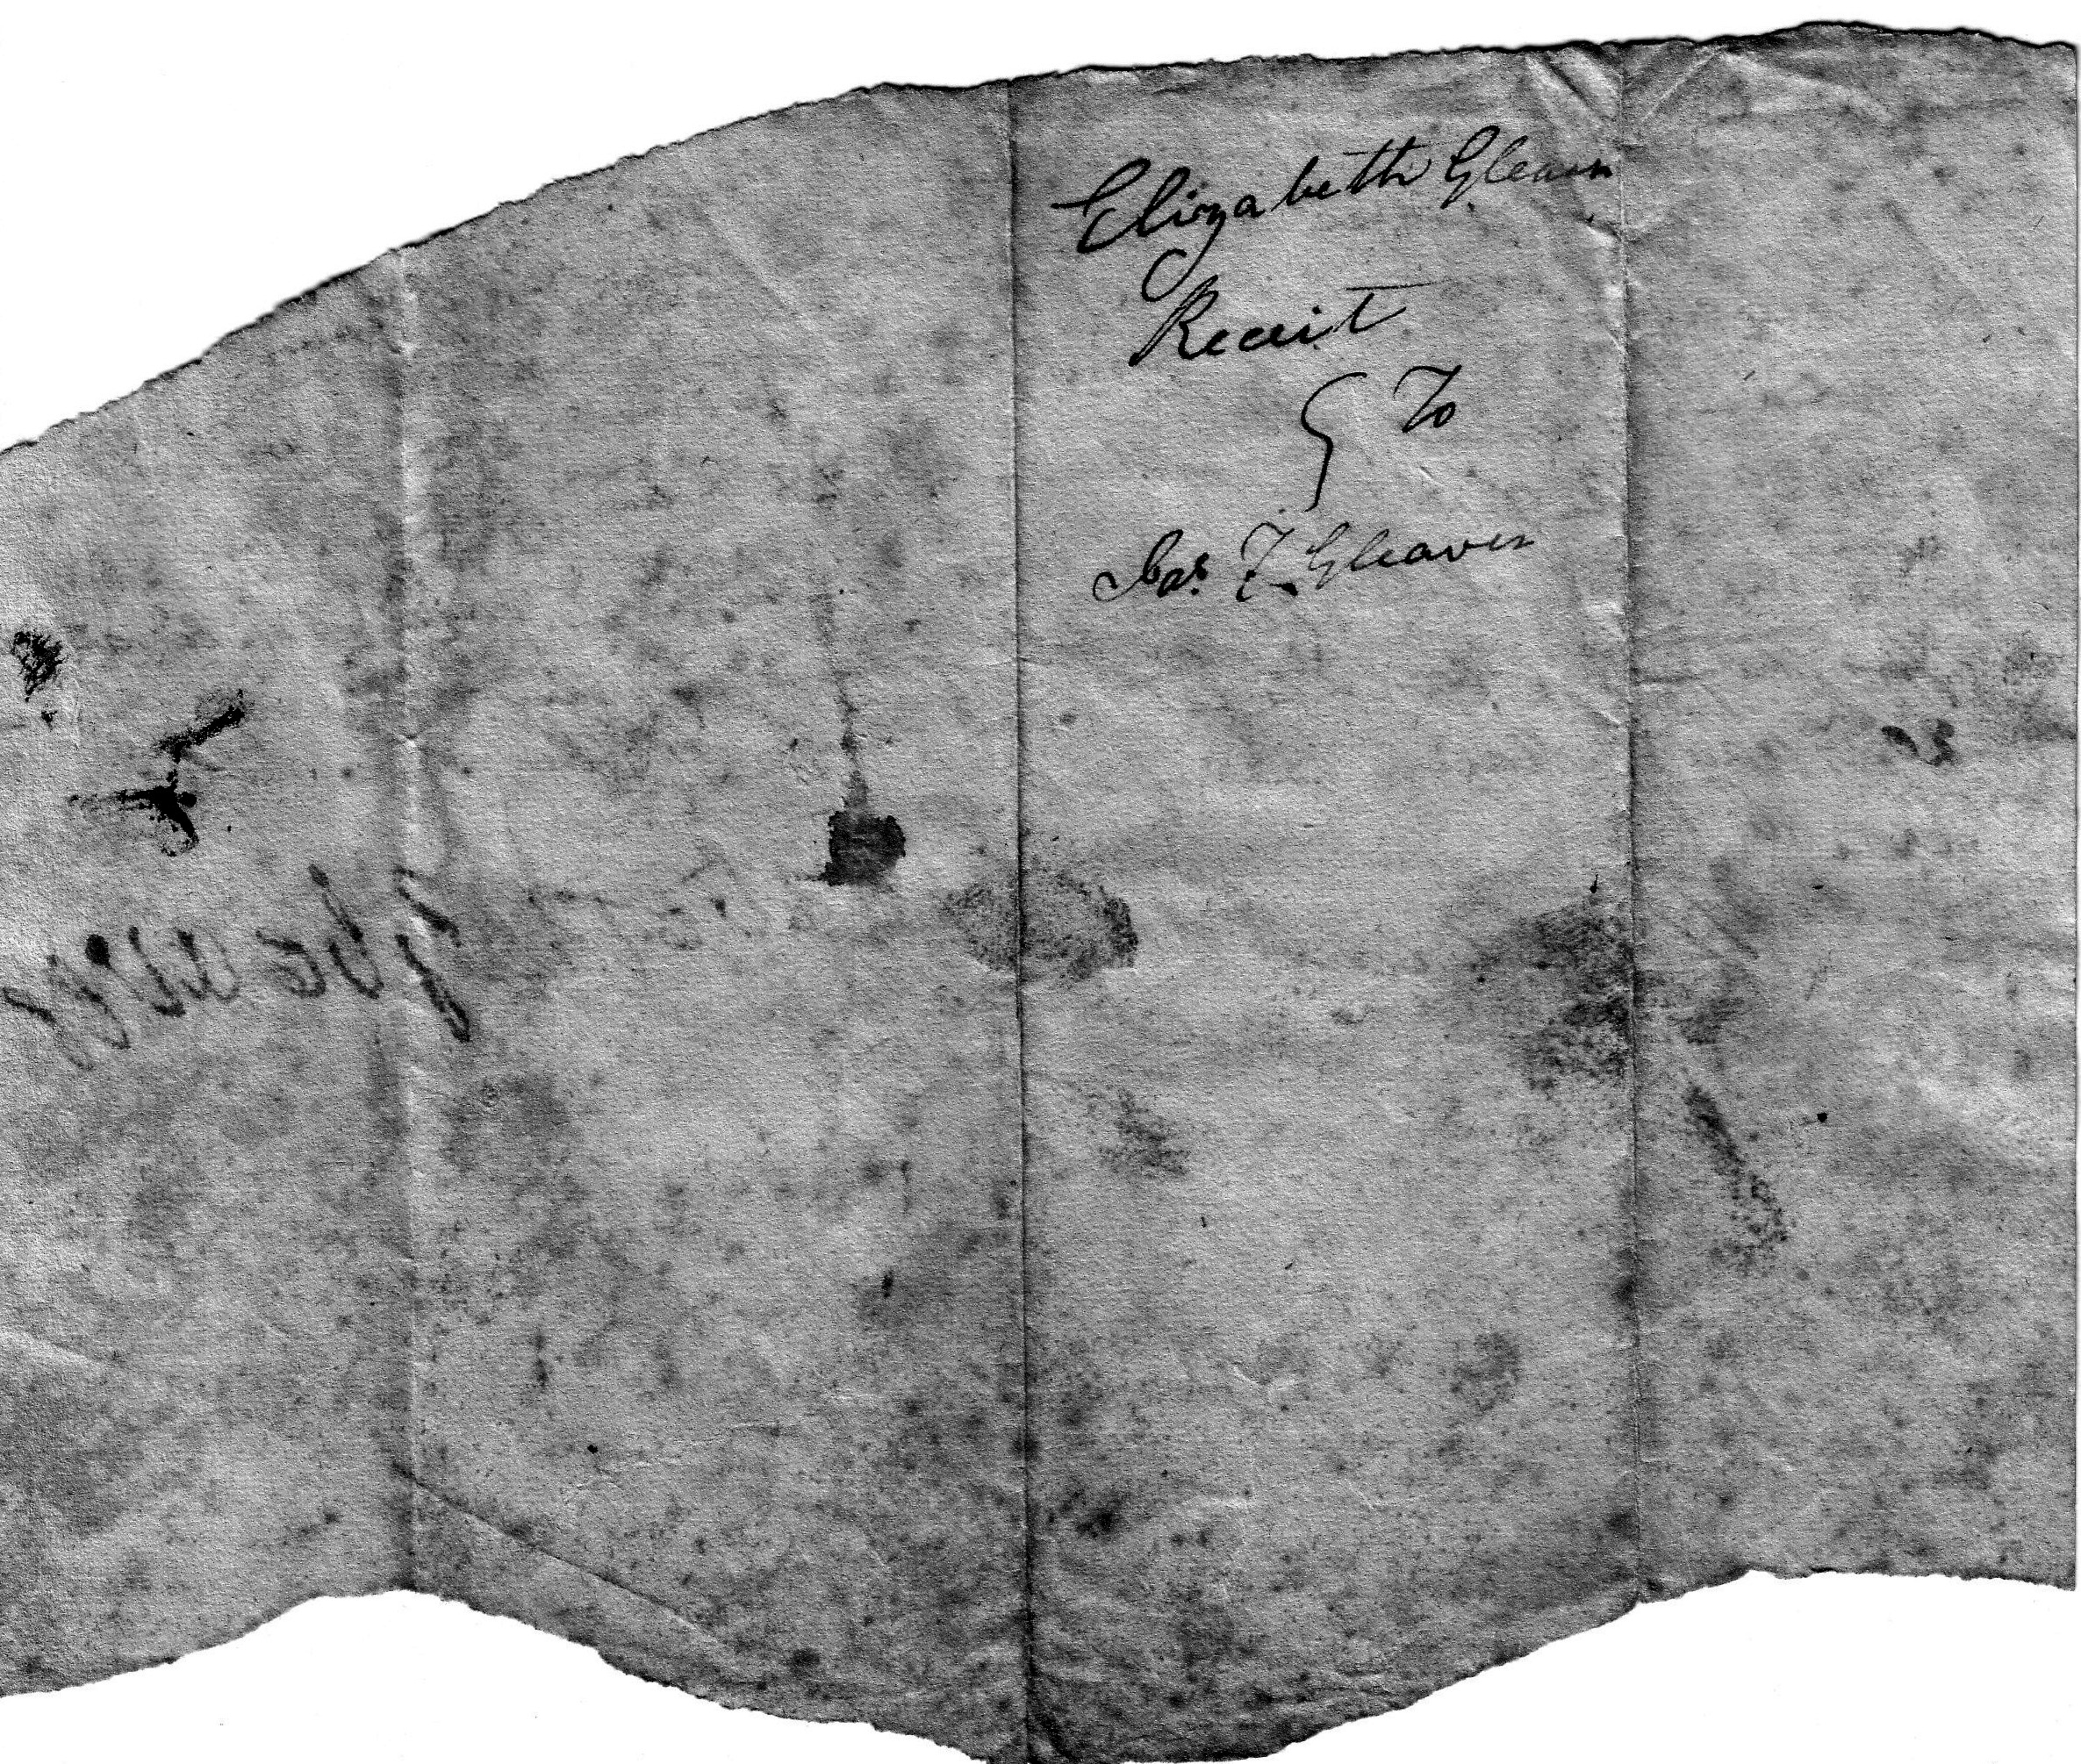 Elizabeth Gleaven
Receit
To
Jas. T. Gleaven